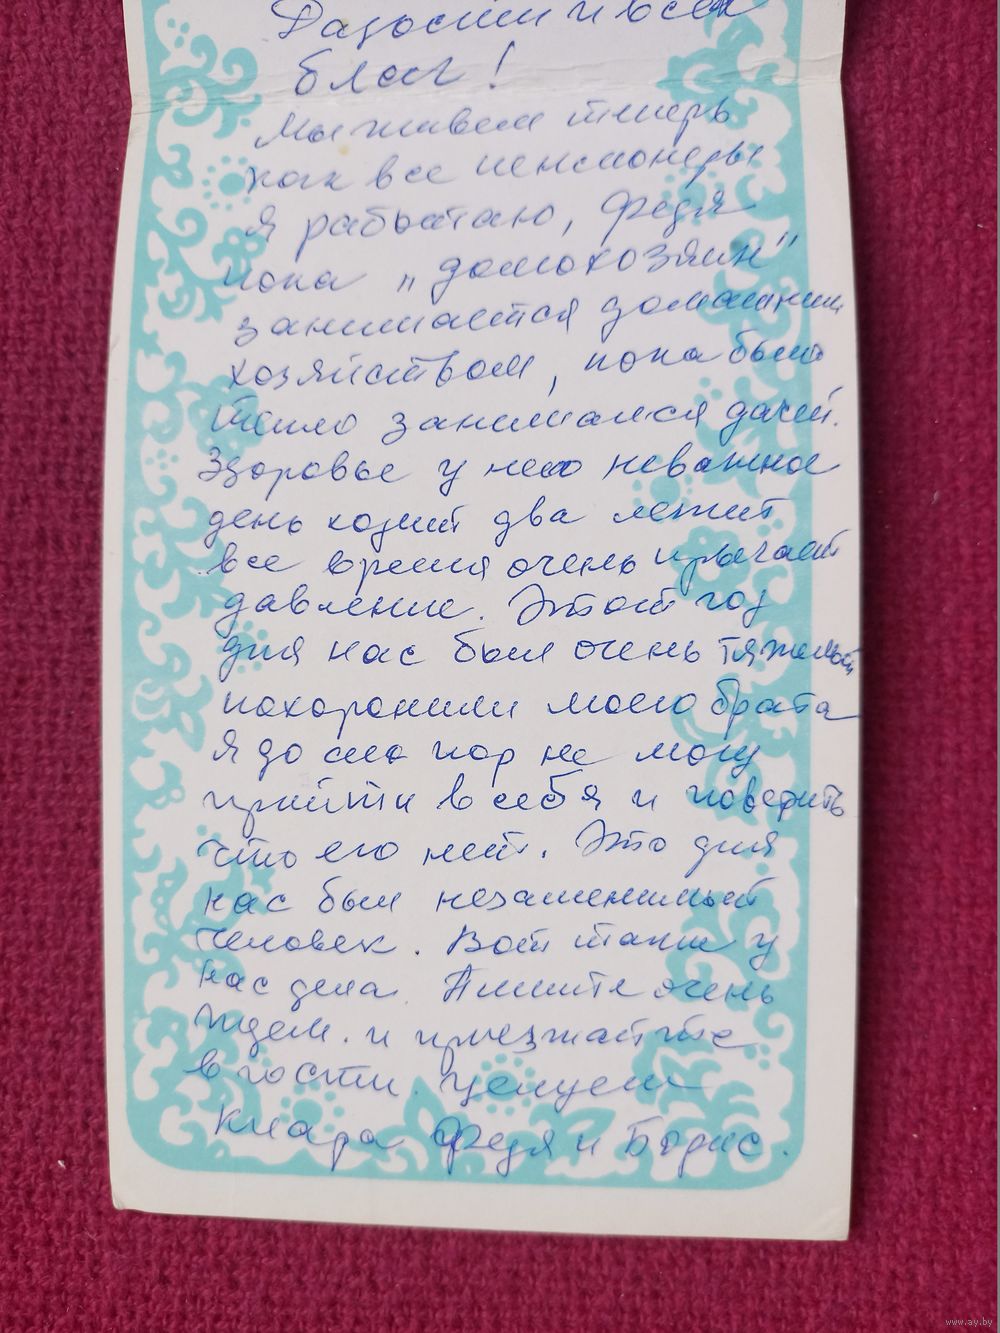 Радости и всех
благ!
Мы живем теперь
как все пенсионеры
я работаю, Федя
пока "домохозяин"
занимается домашним
хозяйством, пока было
тепло занимался дачей.
Здоровье у него неважное
день ходит два лежит
все время очень прыгает
давление. Этот год
для нас был очень тяжелый
похоронили моего брата
я до сих пор не могу
прийти в себя и поверить
что его нет. Это для
нас был незаменимый
человек. Вот такие у
нас дела. Пишите очень
ждем. и приезжайте
в гости. Целуем
Клара Федя и Борис.
www.ay.by